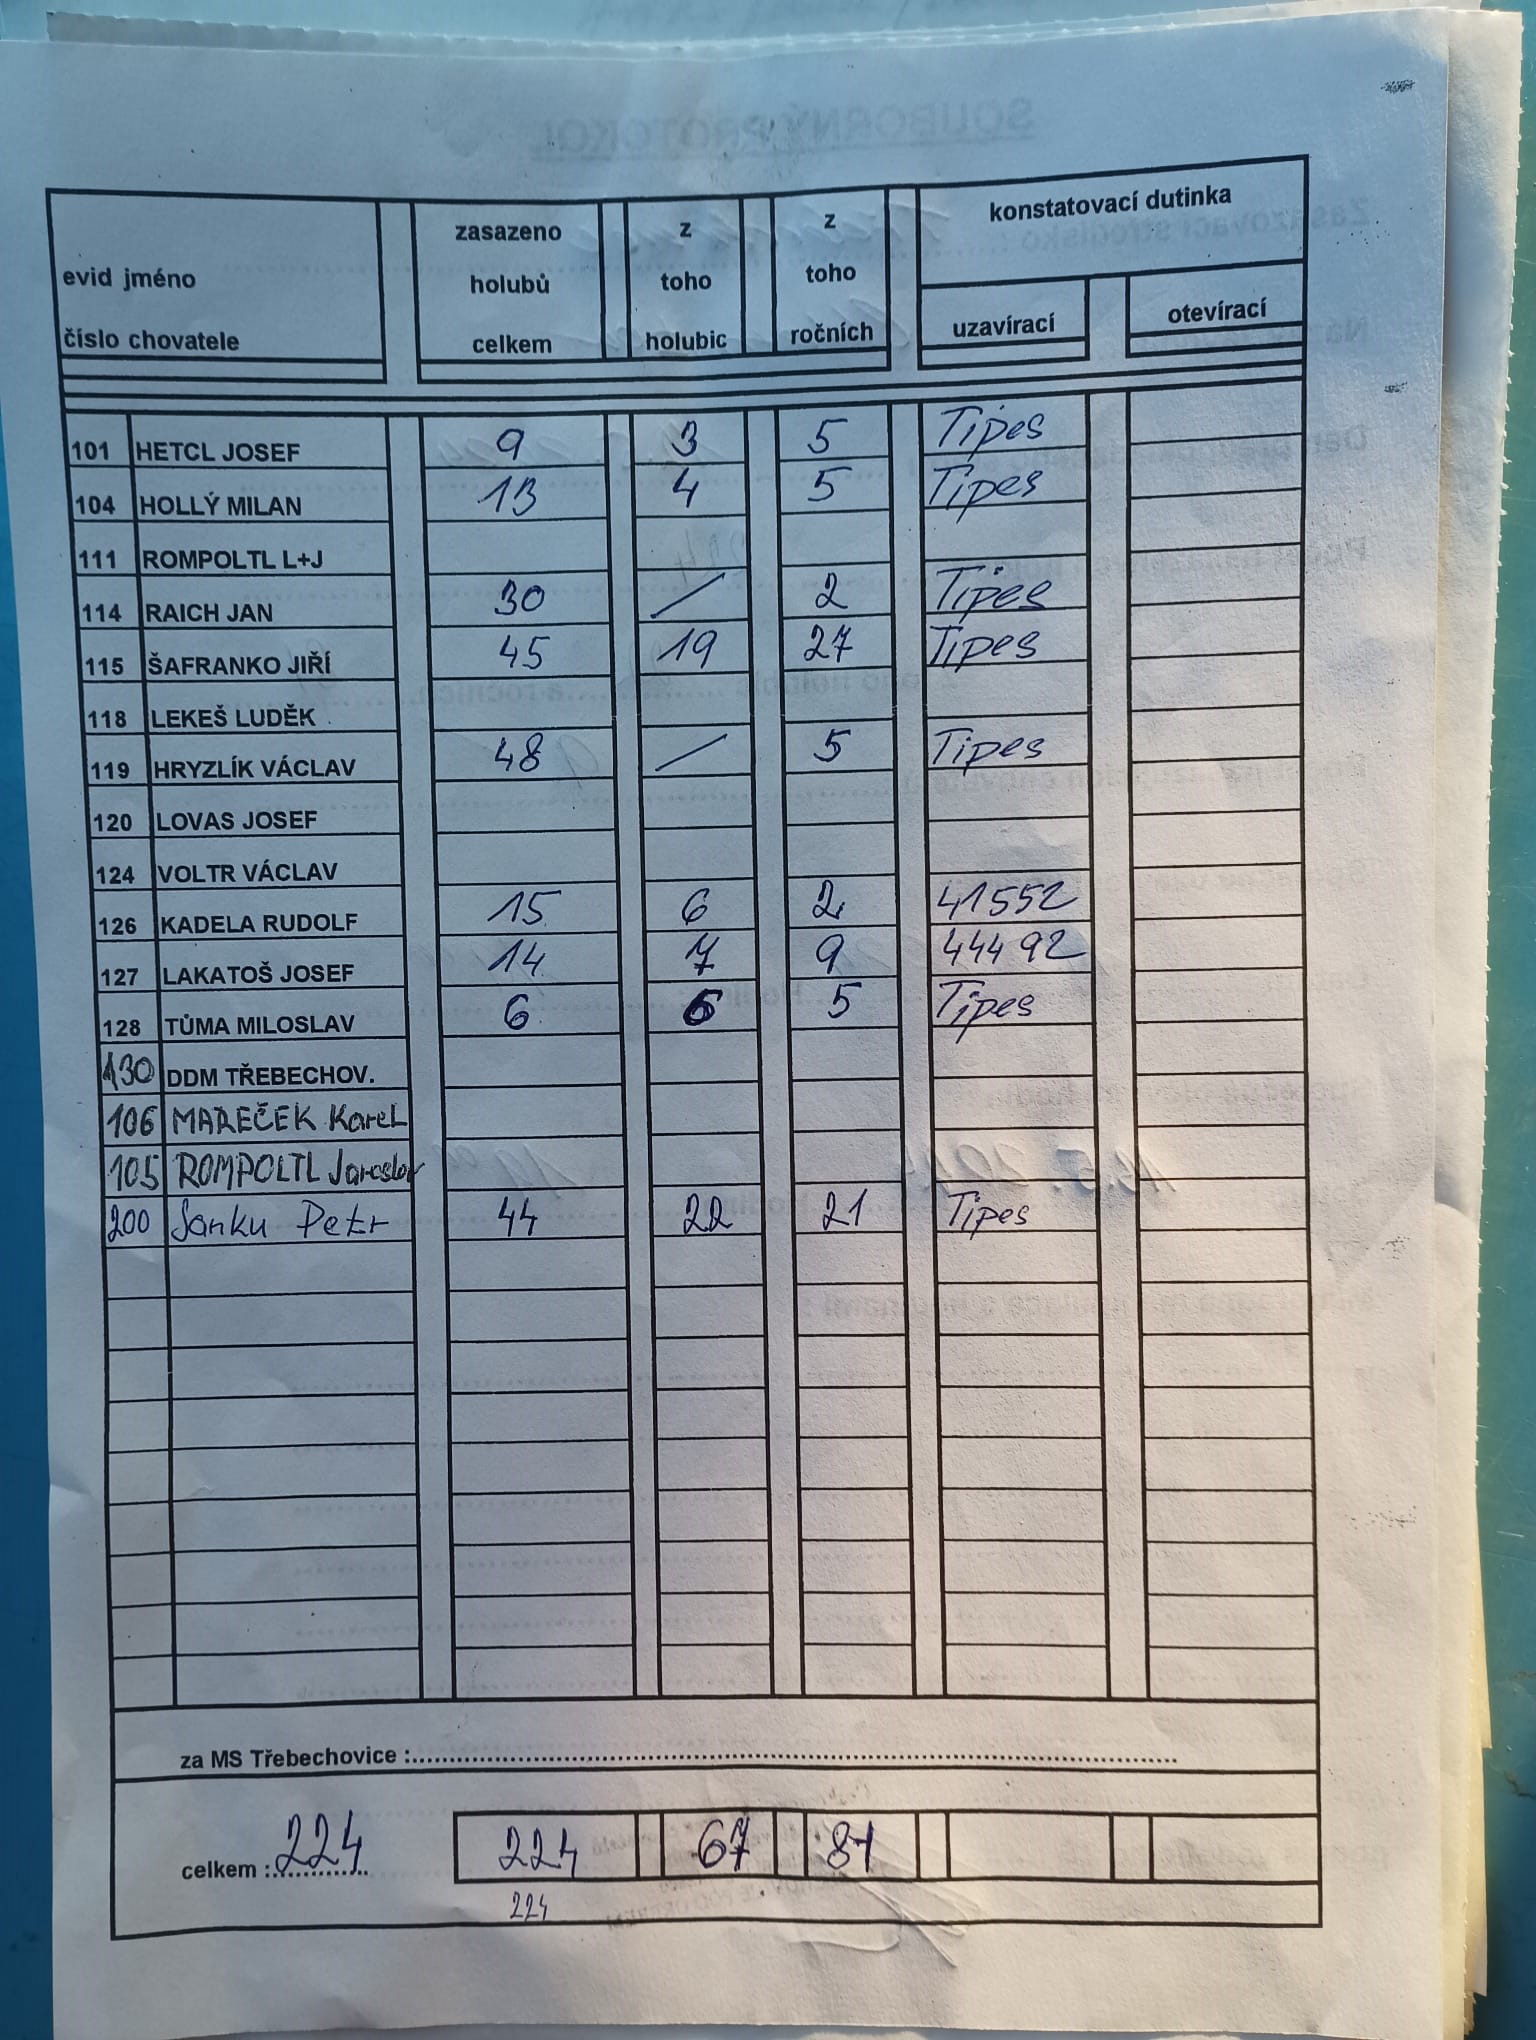 evid jméno
číslo chovatele
zasazeno holubů celkem
z toho holubic
z toho ročních
konstatovací dutinka
uzavírací
otevírací
101 HETCL JOSEF 9 3 5 Tipes
104 HOLLÝ MILAN 13 4 5 Tipes
111 ROMPOLTL L+J
114 RAICH JAN 30 / 2 Tipes
115 ŠAFRANKO JIŘÍ 45 19 27 Tipes
118 LEKEŠ LUDĚK
119 HRYZLÍK VÁCLAV 48 / 5 Tipes
120 LOVAS JOSEF
124 VOLTR VÁCLAV
126 KADELA RUDOLF 15 6 2 41552
127 LAKATOŠ JOSEF 14 7 9 44492
128 TŮMA MILOSLAV 6 6 5 Tipes
130 DDM TŘEBECHOV.
106 MAREČEK Karel
105 ROMPOLTL Jaroslav
200 Janku Petr 44 22 21 Tipes
za MS Třebechovice :
celkem : 224 224 67 81
224